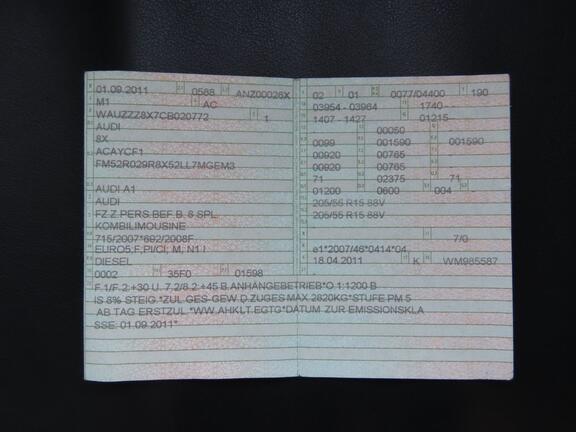 01.09.2011 0588 ANZ00026X
M1 AC
WAUZZZ8X7CB020772 1
AUDI
8X
ACAYCF1
FM52R029R8X52LL7MGEM3
AUDI A1
AUDI
FZ.Z.PERS.BEF.B. 8 SPL.
KOMBILIMOUSINE
715/2007*692/2008F
EURO5;F,PI/CI; M, N1 I
DIESEL
0002 35F0 01598
02 01 0077/04400 190
03954 - 03964 1740 -
1407 - 1427 01215
00050
0099 001590 001590
00920 00765 -
00920 00765 -
71 02375 71
01200 0600 004
205/55 R15 88V
205/55 R15 88V
7/0
e1*2007/46*0414*04
18.04.2011 K WM985587
F.1/F.2:+30 U. 7.2/8.2:+45 B.ANHÄNGEBETRIEB*O.1:1200 B
IS 8% STEIG.*ZUL.GES-GEW.D.ZUGES MAX.2820KG*STUFE PM 5
AB TAG ERSTZUL.*WW.AHKLT.EGTG*DATUM ZUR EMISSIONSKLA
SSE: 01.09.2011*